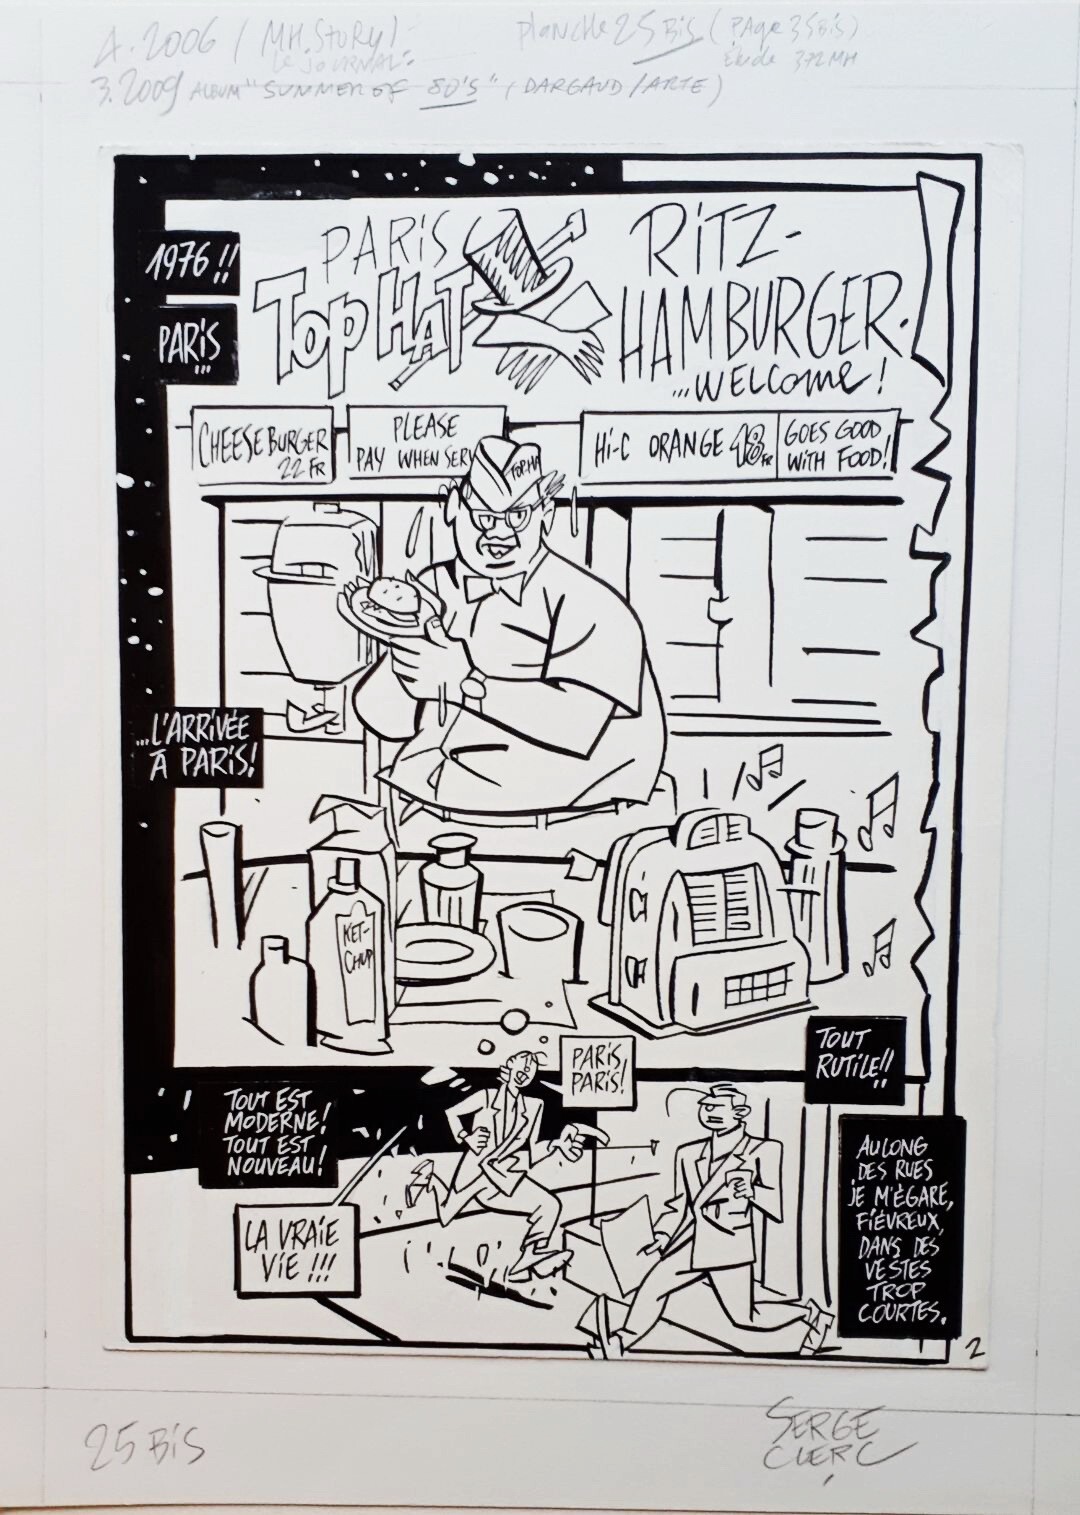 4.2006 / MH.STORY /
LE JOURNAL.
PLANCHE 25 BIS (PAGE 35 BIS)
3.2009 ALBUM "SUMMER OF 80'S" (DARGAUD/ARTE)
1976 !!
PARiS
...
PARiS
TOP HAT
RiTZ-
HAMBURGER.
...WELCOME!
CHEESEBURGER
22 FR
PLEASE
PAY WHEN SERV
Hi-C ORANGE 18 FR
GOES GOOD
WiTH FOOD!
TOP.HA
...L'ARRiVÉE
À PARiS!
KET-
CHUP
TOUT
RUTiLE!!
PARiS,
PARiS!
TOUT EST
MODERNE!
TOUT EST
NOUVEAU!
LA VRAiE
ViE !!!
AU LONG
DES RUES
JE M'ÉGARE,
FiÉVREUX,
DANS DES
VESTES
TROP
COURTES.
2
25 BiS
SERGE
CLERC